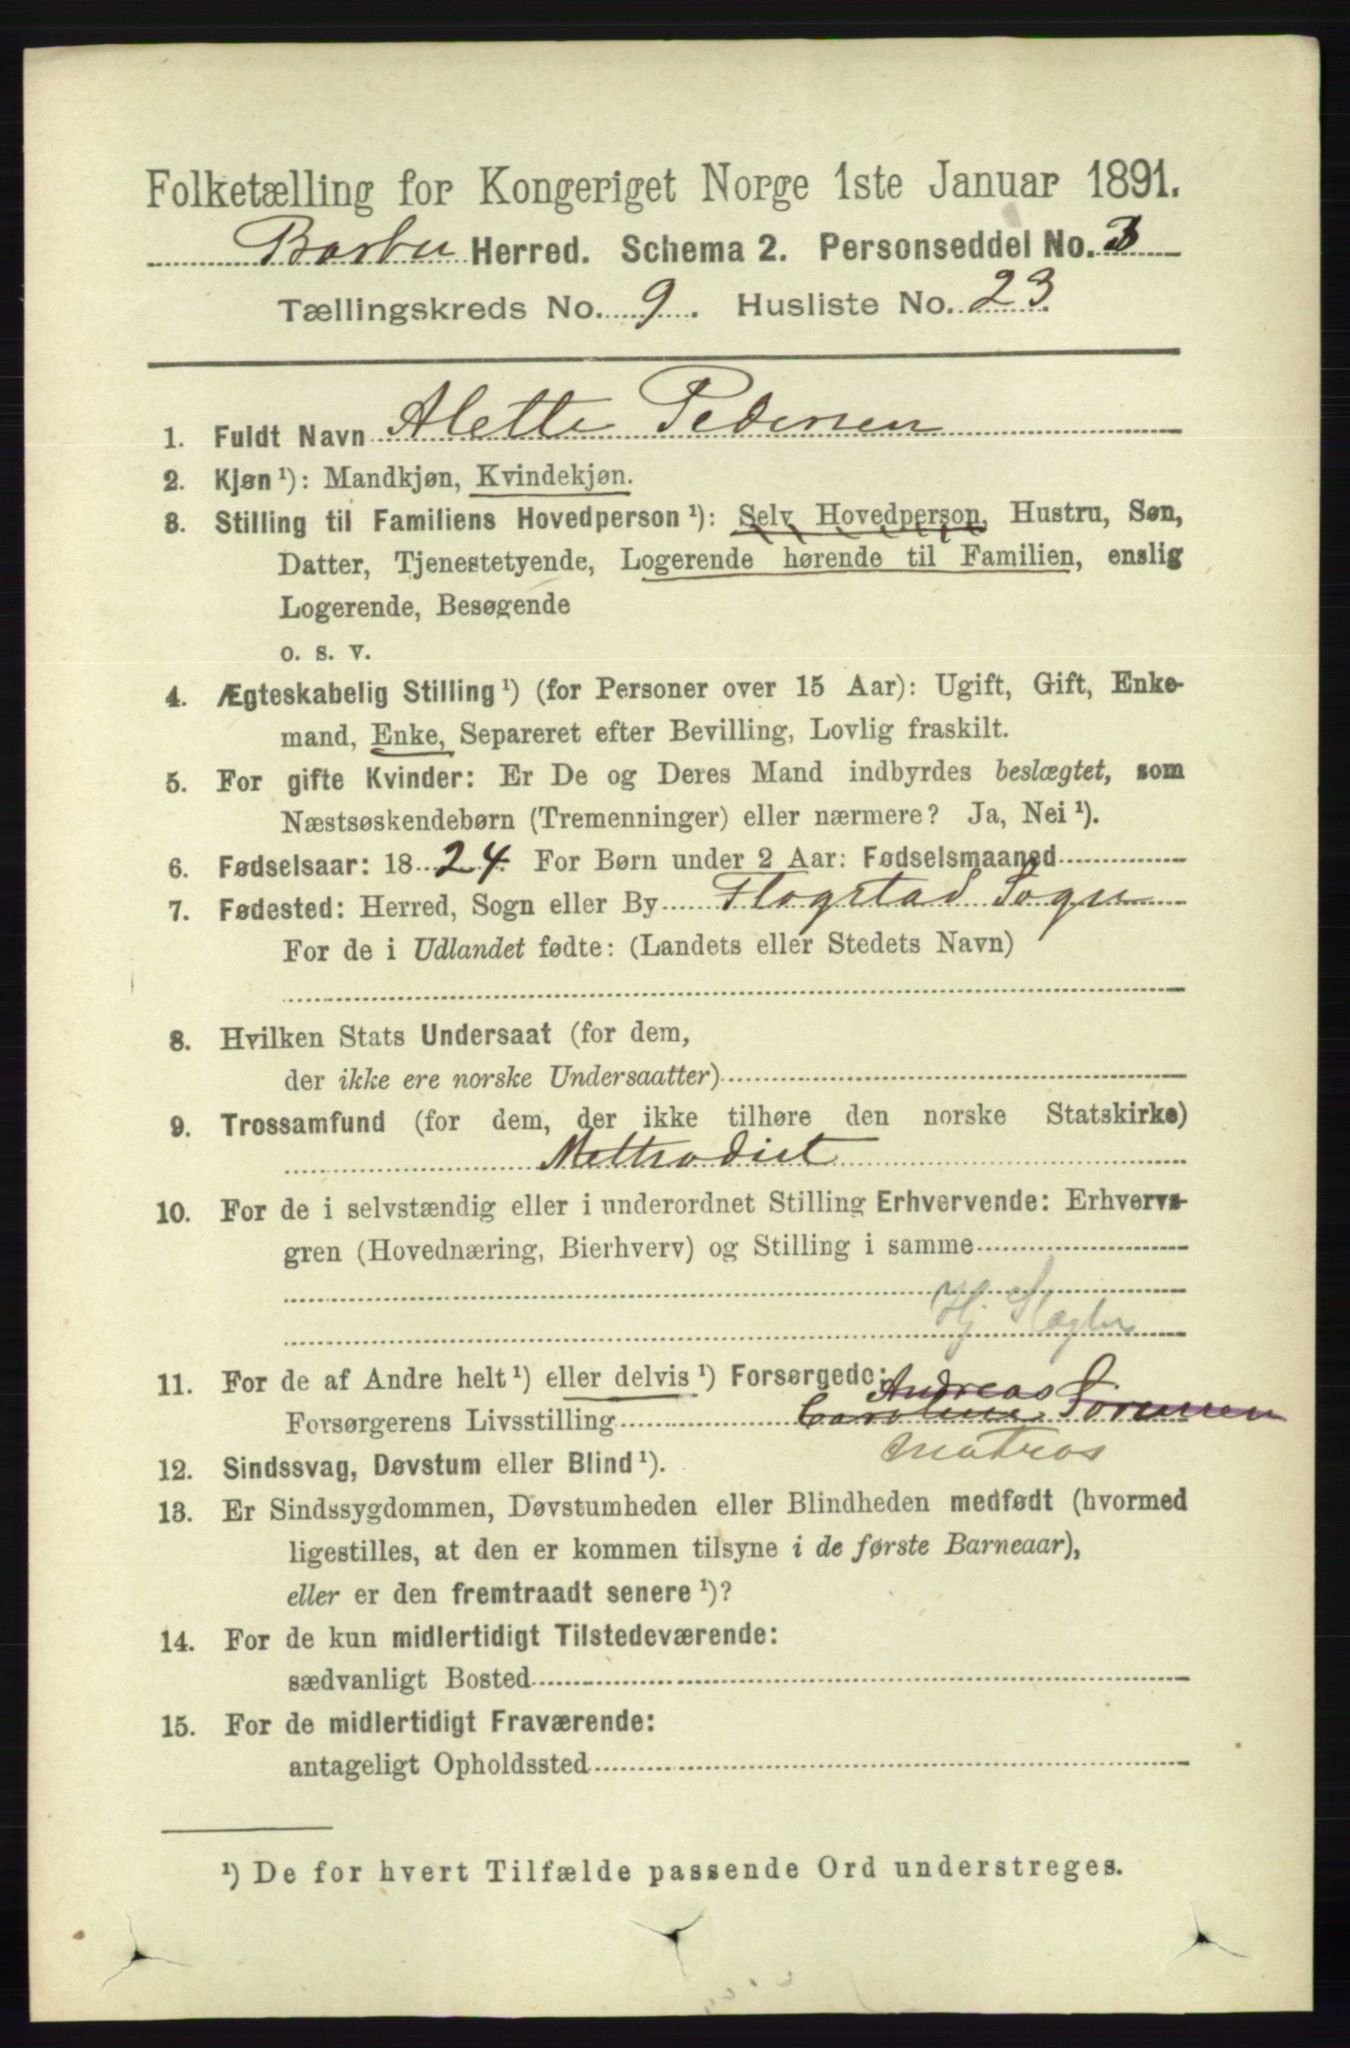 Folketælling for Kongeriget Norge 1ste Januar 1891.
Barbu Herred. Schema 2. Personseddel No. 3
Tællingskreds No. 9. Husliste No. 23
1. Fuldt Navn Alette Pedersen
2. Kjøn ¹): Mandkjøn, Kvindekjøn.
3. Stilling til Familiens Hovedperson ¹): Selv Hovedperson, Hustru, Søn,
Datter, Tjenestetyende, Logerende hørende til Familien, enslig
Logerende, Besøgende
o. s. v.
4. Ægteskabelig Stilling ¹) (for Personer over 15 Aar): Ugift, Gift, Enke-
mand, Enke, Separeret efter Bevilling, Lovlig fraskilt.
5. For gifte Kvinder: Er De og Deres Mand indbyrdes beslægtet, som
Næstsøskendebørn (Tremenninger) eller nærmere? Ja, Nei ¹).
6. Fødselsaar: 1824. For Børn under 2 Aar: Fødselsmaaned
7. Fødested: Herred, Sogn eller By Flogstad Sogn
For de i Udlandet fødte: (Landets eller Stedets Navn)
8. Hvilken Stats Undersaat (for dem,
der ikke ere norske Undersaatter)
9. Trossamfund (for dem, der ikke tilhøre den norske Statskirke)
Methodist
10. For de i selvstændig eller i underordnet Stilling Erhvervende: Erhvervs-
gren (Hovednæring, Bierhverv) og Stilling i samme
Hj
11. For de af Andre helt ¹) eller delvis ¹) Forsørgede:
Andreas
Forsørgerens Livsstilling Caroline Sörensen
Matros
12. Sindssvag, Døvstum eller Blind ¹).
13. Er Sindssygdommen, Døvstumheden eller Blindheden medfødt (hvormed
ligestilles, at den er kommen tilsyne i de første Barneaar),
eller er den fremtraadt senere ¹)?
14. For de kun midlertidigt Tilstedeværende:
sædvanligt Bosted
15. For de midlertidigt Fraværende:
antageligt Opholdssted
¹) De for hvert Tilfælde passende Ord understreges.